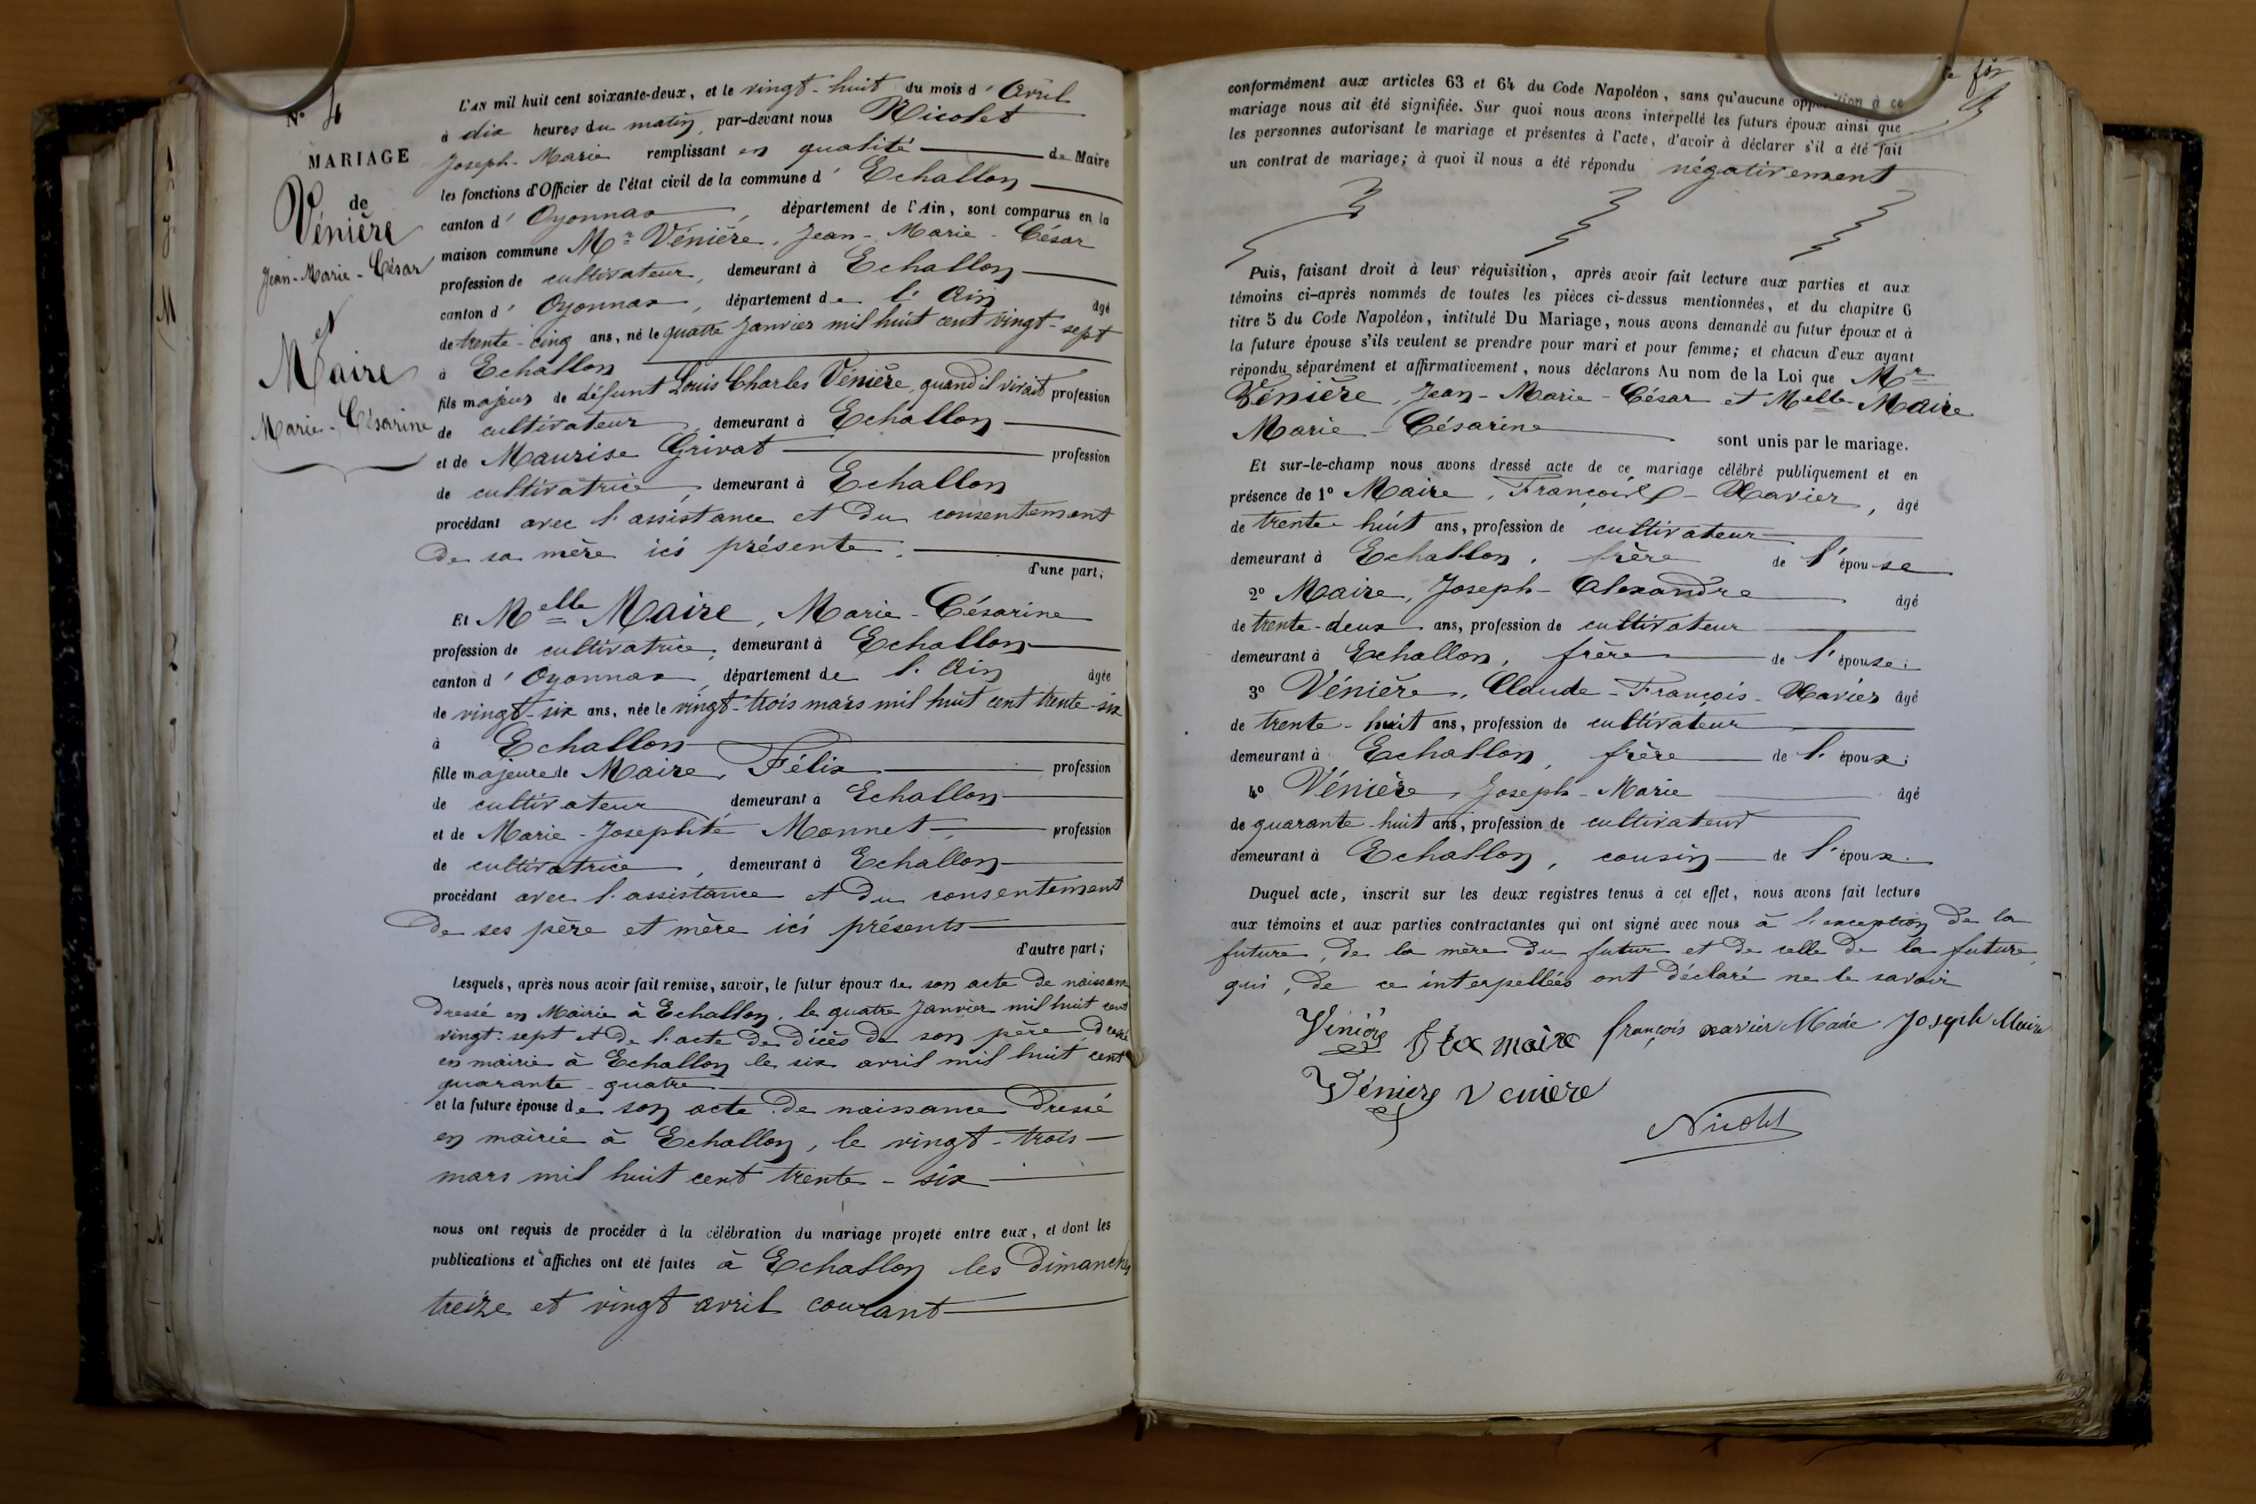 N° 4
MARIAGE
de
Vénière
Jean-Marie-César
et
Maire
Marie-Césarine
L'AN mil huit cent soixante-deux, et le vingt-huit du mois d'Avril
à dix heures du matin, par-devant nous Nicolet
Joseph-Marie remplissant en qualité de Maire
les fonctions d'Officier de l'état civil de la commune d'Echallon
canton d'Oyonnax, département de l'Ain, sont comparus en la
maison commune Mr Vénière, Jean-Marie-César
profession de cultivateur, demeurant à Echallon
canton d'Oyonnax, département de l'Ain âgé
de trente-cinq ans, né le quatre Janvier mil huit cent vingt-sept
à Echallon
fils majeur de défunt Louis Charles Vénière, quand il vivait profession
de cultivateur, demeurant à Echallon
et de Maurise Grivat profession
de cultivatrice, demeurant à Echallon
procédant avec l'assistance et du consentement
de sa mère ici présente.
d'une part;
Et Melle Maire, Marie-Césarine
profession de cultivatrice, demeurant à Echallon
canton d'Oyonnax, département de l'Ain âgée
de vingt-six ans, née le vingt-trois mars mil huit cent trente-six
à Echallon
fille majeure de Maire, Félix profession
de cultivateur, demeurant à Echallon
et de Marie-Josephte Monnet, profession
de cultivatrice, demeurant à Echallon
procédant avec l'assistance et du consentement
de ses père et mère ici présents
d'autre part;
Lesquels, après nous avoir fait remise, savoir, le futur époux de son acte de naissance
dressé en Mairie à Echallon, le quatre Janvier mil huit cent
vingt-sept et de l'acte de décès de son père, dressé
en mairie à Echallon le six avril mil huit cent
quarante-quatre
et la future épouse de son acte de naissance dressé
en mairie à Echallon, le vingt-trois
mars mil huit cent trente-six
nous ont requis de procéder à la célébration du mariage projeté entre eux, et dont les
publications et affiches ont été faites à Echallon les dimanches
treize et vingt avril courant
conformément aux articles 63 et 64 du Code Napoléon, sans qu'aucune opposition à ce
mariage nous ait été signifiée. Sur quoi nous avons interpellé les futurs époux ainsi que
les personnes autorisant le mariage et présentes à l'acte, d'avoir à déclarer s'il a été fait
un contrat de mariage; à quoi il nous a été répondu négativement
Puis, faisant droit à leur réquisition, après avoir fait lecture aux parties et aux
témoins ci-après nommés de toutes les pièces ci-dessus mentionnées, et du chapitre 6
titre 5 du Code Napoléon, intitulé Du Mariage, nous avons demandé au futur époux et à
la future épouse s'ils veulent se prendre pour mari et pour femme; et chacun d'eux ayant
répondu séparément et affirmativement, nous déclarons Au nom de la Loi que Mr
Vénière, Jean-Marie-César et Melle Maire
Marie-Césarine sont unis par le mariage.
Et sur-le-champ nous avons dressé acte de ce mariage célébré publiquement et en
présence de 1° Maire, François-Xavier, âgé
de trente-huit ans, profession de cultivateur
demeurant à Echallon, frère de l'épouse
2° Maire, Joseph-Alexandre âgé
de trente-deux ans, profession de cultivateur
demeurant à Echallon, frère de l'épouse;
3° Vénière, Claude-François-Xavier âgé
de trente-huit ans, profession de cultivateur
demeurant à Echallon, frère de l'époux;
4° Vénière, Joseph-Marie âgé
de quarante-huit ans, profession de cultivateur
demeurant à Echallon, cousin de l'époux.
Duquel acte, inscrit sur les deux registres tenus à cet effet, nous avons fait lecture
aux témoins et aux parties contractantes qui ont signé avec nous à l'exception de la
future, de la mère du futur et de celle de la future,
qui, de ce interpellées ont déclaré ne le savoir
Vénière maire françois xavier Maire Joseph Maire
Vénière Veniere
Nicolet